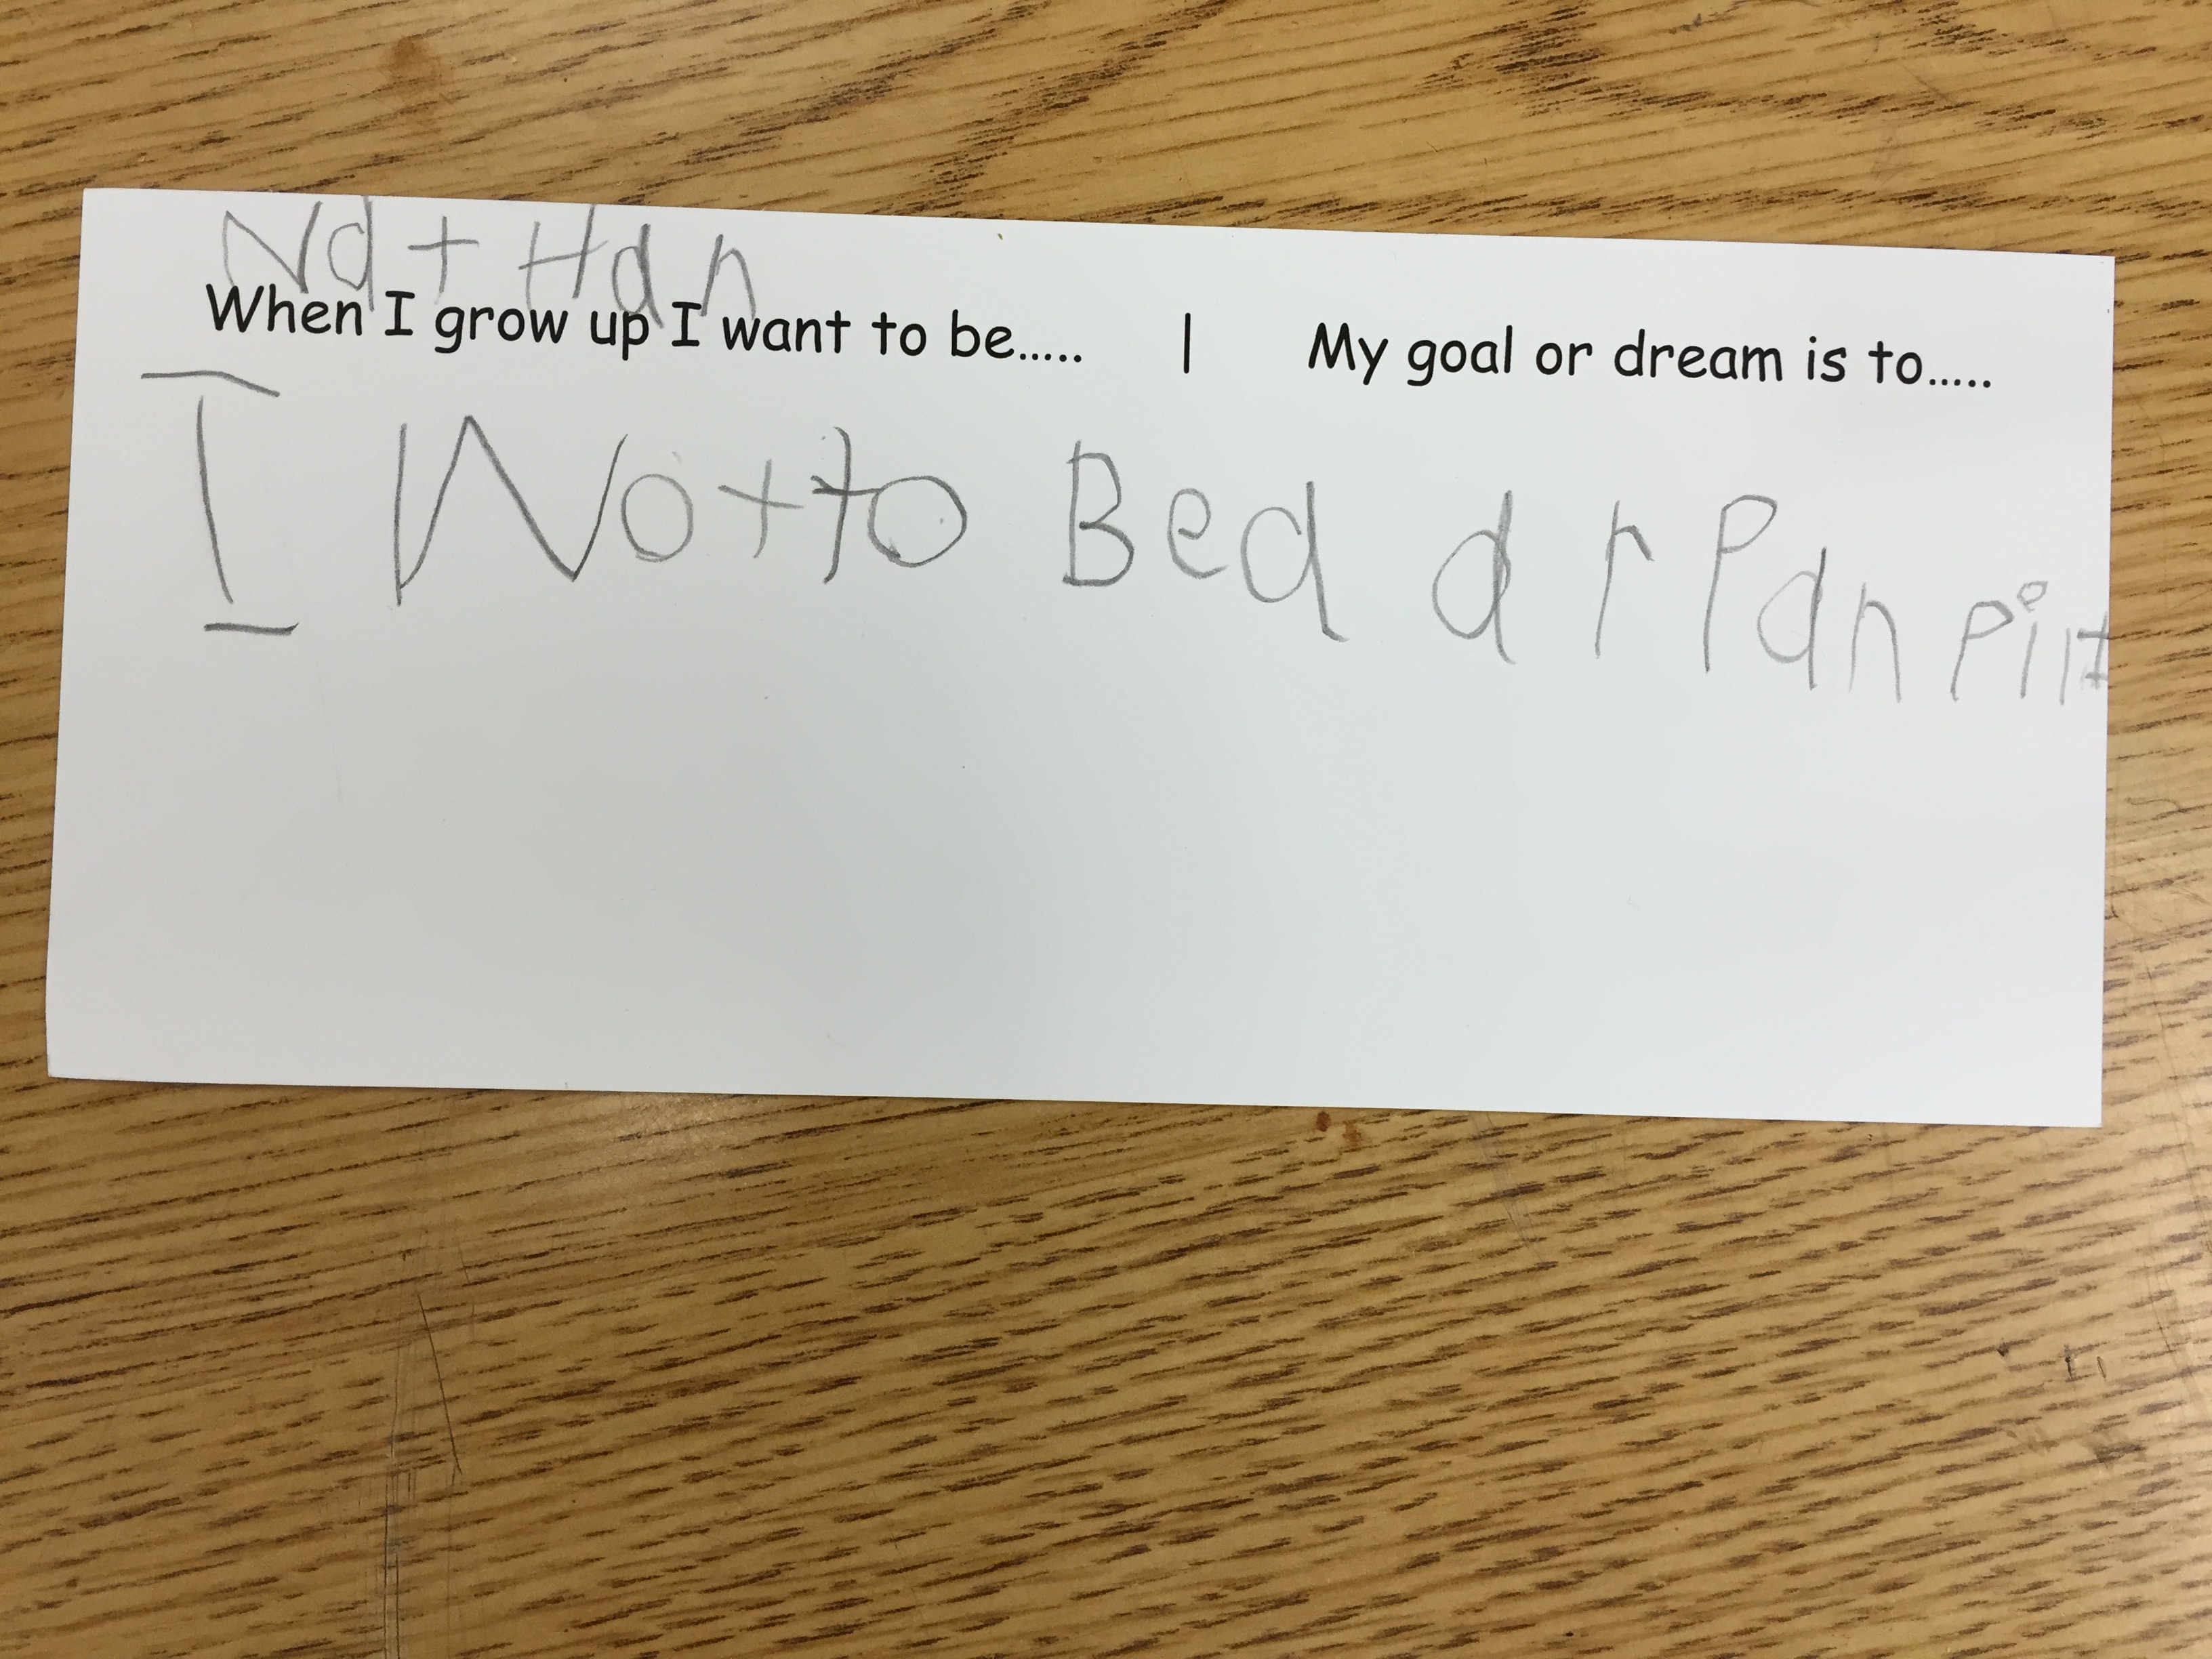 Nathan
When I grow up I want to be..... | My goal or dream is to.....
I Wotto Bea arPan Pilt